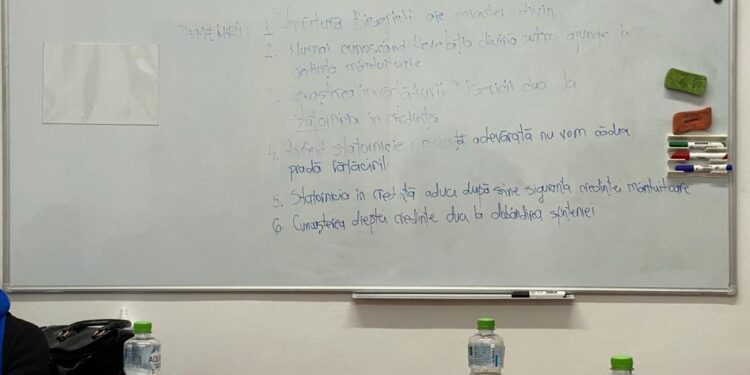 1. Învățătura Bisericii are caracter divin
2. Numai cunoscând Revelația divină putem ajunge la
credința mântuitoare
3. Cunoașterea învățăturii Bisericii duce la
statornicia în credință
4. Având statornicie credință adevărată nu vom cădea
pradă rătăcirii
5. Statornicia în credință aduce după sine siguranța credinței mântuitoare
6. Cunoașterea dreptei credințe duce la dobândirea sfinteniei